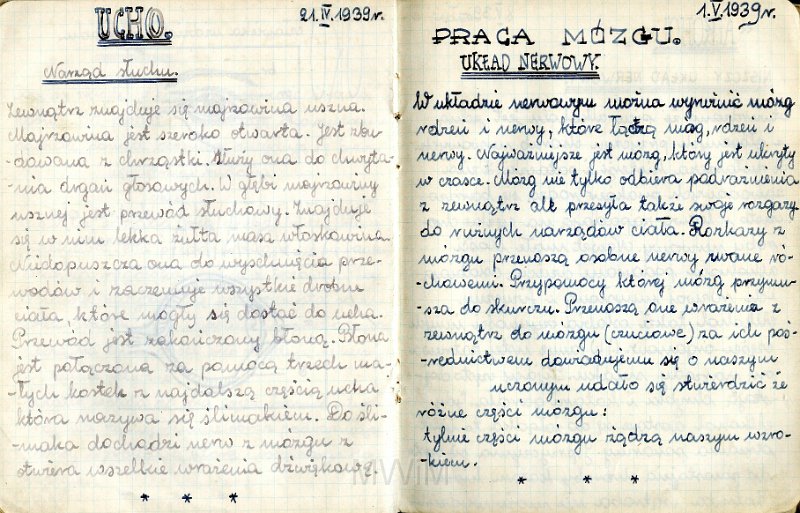 UCHO. 21.IV.1939r.
Narząd słuchu.
Zewnątrz znajduje się majzowina uszna.
Majzowina jest szeroko otwarta. Jest zbu-
-dowana z chrząstki. Służy ona do chwyta-
-nia drgań głosowych. W głębi majzowiny
usznej jest przewód słuchowy. Znajduje
się w nim lekka żółta masa włoskowina.
Niedopuszcza ona do wyschnięcia prze-
wodów i zaczemuje wszystkie drobne
ciała, które mogły się dostać do ucha.
Przewód jest zakończony błoną. Błona
jest połączona za pomocą trzech ma-
-łych kostek z najdalszą częścią ucha
która nazywa się ślimakiem. Do śli-
-maka dochodzi nerw z mózgu z
otwiera wszelkie wrażenia dźwiękowe.
* * *
1.V.1939r.
PRACA MÓZGU.
UKŁAD NERWOWY.
W układzie nerwowym można wyróżnić mózg
rdzeń i nerwy, które łączą mózg, rdzeń i
nerwy. Najważniejsze jest mózg, który jest ukryty
w czasce. Mózg nie tylko odbiera podrażnienia
z zewnątrz ale przesyła także swoje rozgazy
do różnych narządów ciała. Rozkazy z
mózgu przenoszą osobne nerwy zwane ró-
-chowemi. Przypomocy której mózg przymu-
-sza do skurczu. Przenoszą one wrażenia z
zewnątrz do mózgu (czuciowe) za ich poś-
-rednictwem dowiadujemy się o naszym
uczonym udało się stwierdzić że
różne części mózgu:
tylnie części mózgu rządzą naszym wzro-
-kiem.
* * *
MWiM